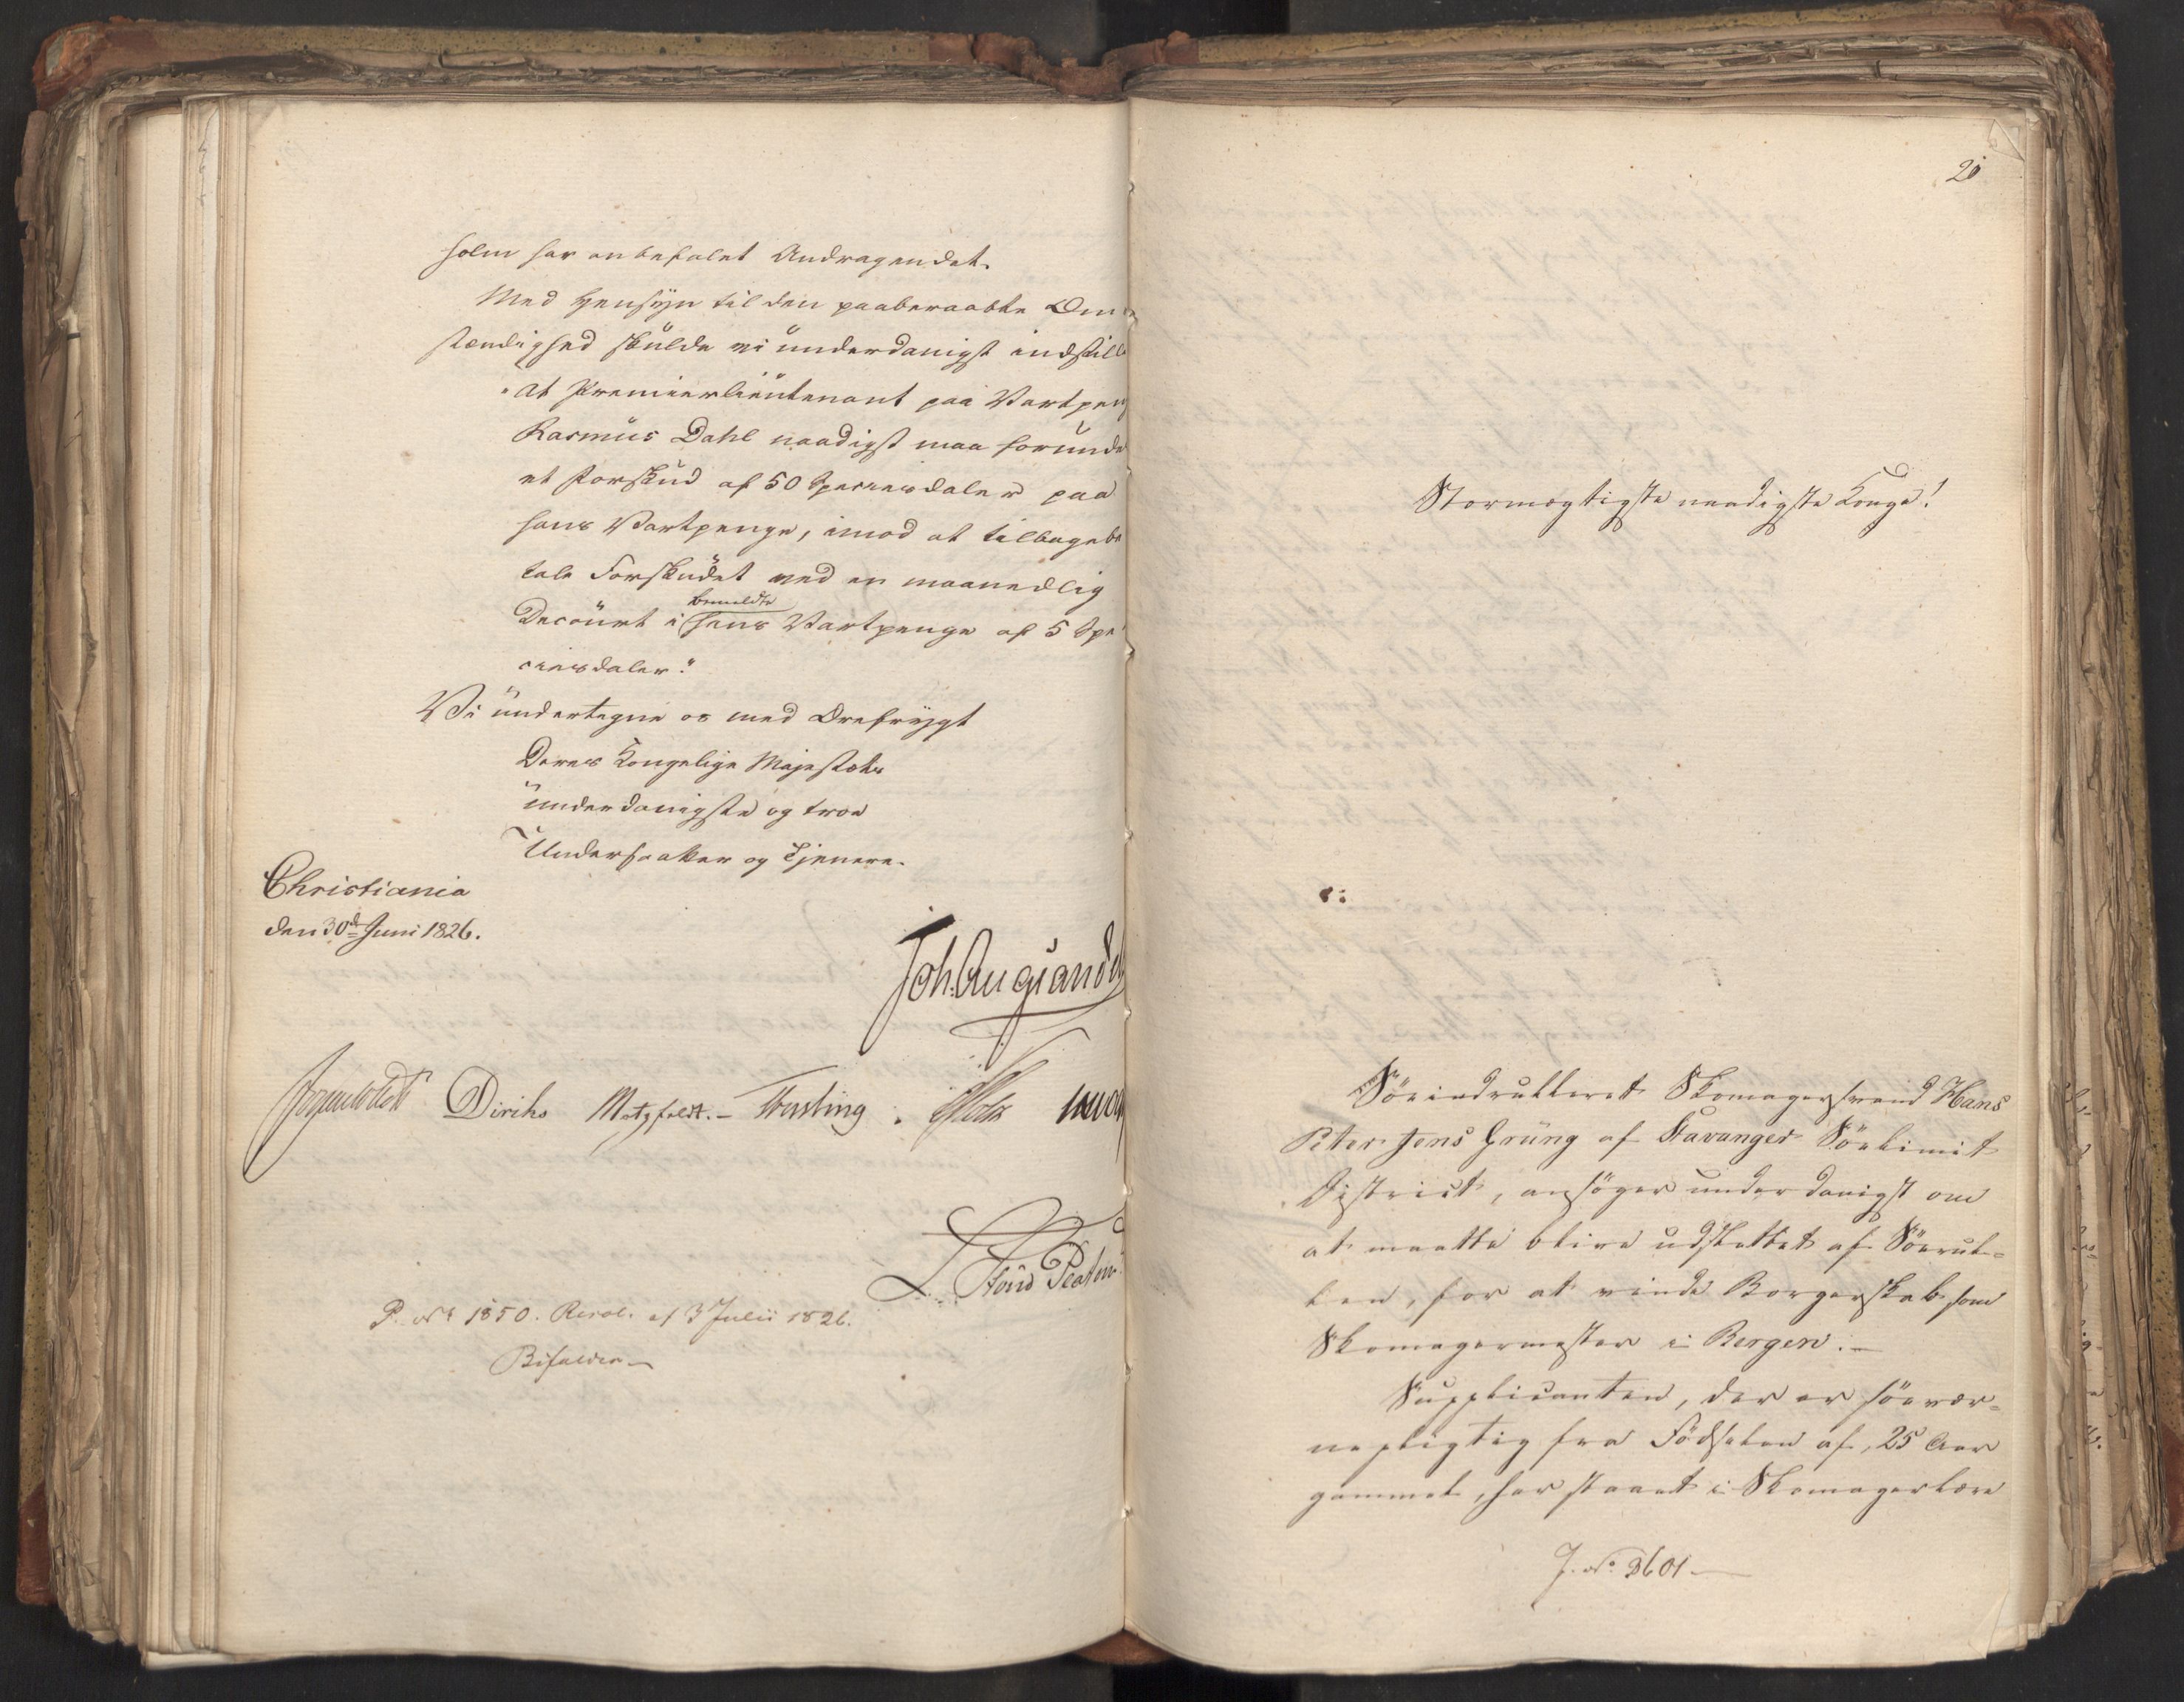 holm har anbefalet Andragendet.
Med Hensyn til den paaberaabte Om
stændighed skulde vi underdanigst indstille
"At Premierlieutenant paa Vartpeng
Rasmus Dahl naadigst maa forunde
et Forskud af 50 Speciesdaler paa
hans Vartpenge, imod at tilbagebe
tale Forskudet ved en maanedlig
bemeldte
Decourt i hans Vartpenge af 5 Spe
ciesdaler."
Vi undertegne os med Ærefrygt
Deres Kongelige Majestæts
underdanigste og troe
Undersaatter og Tjenere.
Christiania
den 30d Juni 1826.
Joh: Aug Sande
Diriks Motzfeldt. Fasting
P. No 1850. Resol. af 3 Julii 1826.
Bifaldes
20
Stormægtigste naadigste Konge!
Søeindrulleret Skomagersvend Hans
Peter Jens Grung af Stavanger Søelimit
District, ansøger underdanigst om
at maatte blive udslettet af Søerul-
len, for at vinde Borgerskab som
Skomagermester i Bergen.
Supplicanten, der er søevær-
nepligtig fra Fødselen af, 25 Aar
gammel, har staaet i Skomagerlære
J. No 3601